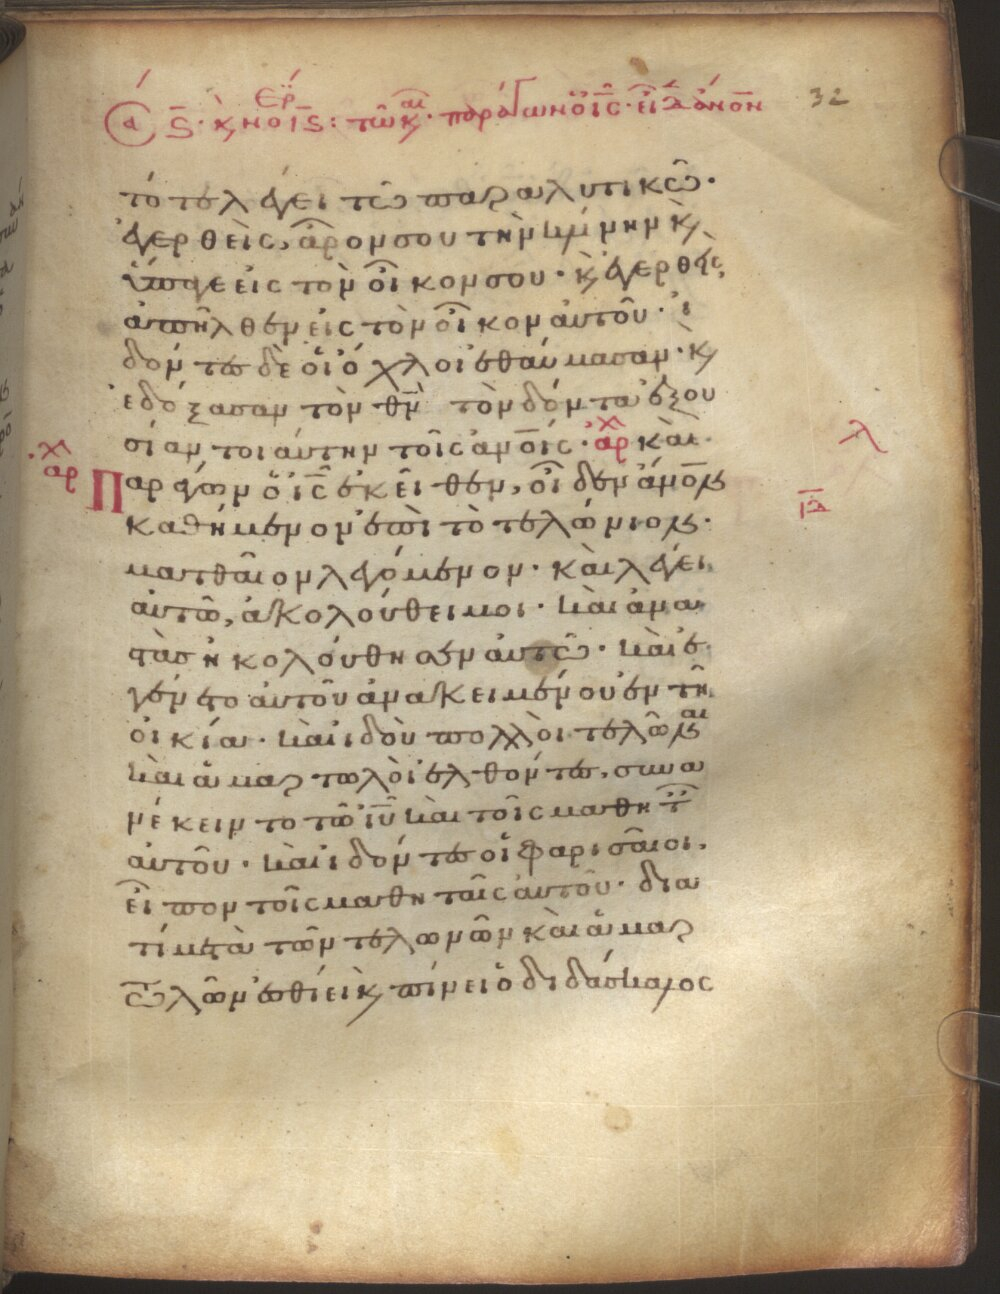 32
τότε λέγει τῶ παραλυτικῶ·
ἐγερθεὶς, ἆρον σου τὴν κλίνην κ̀
ὕπαγε εἰς τὸν οἶκον σου· κ̀ ἐγερθεὶς,
ἀπῆλθεν εἰς τὸν οἶκον αὐτοῦ· ἰ
δόντες δὲ οἱ ὄχλοι ἐθαύμασαν· κ̀
ἐδόξασαν τὸν θ̅ν̅ τὸν δόντα ἐξου
σίαν τοιαύτην τοῖς ἀν̅οις· ἀρχ καὶ
ἀρχ
Παράγων ὁ ι̅ς̅ ἐκεῖθεν, εἶδεν ἄν̅ον
καθήμενον ἐπὶ τὸ τελώνιον·
ματθαῖον λεγόμενον· καὶ λέγει
αὐτῶ, ἀκολούθει μοι· καὶ ἀνα
στὰς ἠκολούθησεν αὐτῶ· καὶ ἐ
γένετο αὐτοῦ ἀνακειμένου ἐν τῆ
οἰκία· καὶ ἰδοὺ πολλοὶ τελῶναι
καὶ ἁμαρτωλοὶ ἐλθόντες, συνα
νέκειντο τῶ ι̅υ̅ καὶ τοῖς μαθητ
αὐτοῦ· καὶ ἰδόντες οἱ φαρισαῖοι,
εἶπον τοῖς μαθηταῖς αὐτοῦ· δια
τί μετὰ τῶν τελωνῶν καὶ ἁμαρ
τωλῶν ἐσθίει κ̀ πίνει ὁ διδάσκαλος